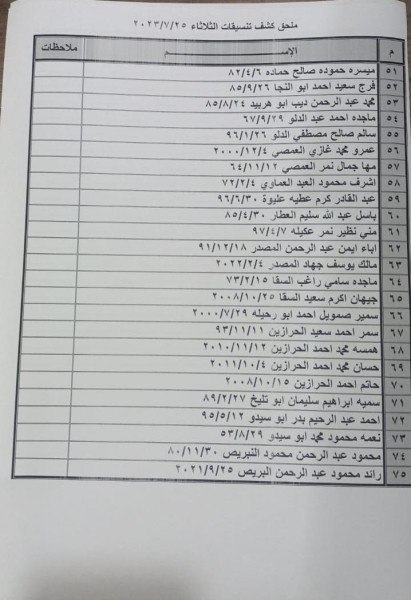 ملحق كشف تنسيقات الثلاثاء ٢٠٢٣/٧/٢٥
م الإســـم ملاحظات
٥١ ميسره حموده صالح حماده ٨٢/٤/٦
٥٢ فرج سعيد احمد ابو النجا ٨٥/٩/٢٦
٥٣ محمد عبد الرحمن ديب ابو هربيد ٨٥/٨/٢٤
٥٤ ماجده احمد عبد الدلو ٦٧/٩/٢٩
٥٥ سالم صالح مصطفي الدلو ٩٦/١/٢٦
٥٦ عمرو محمد غازي العمصي ٢٠٠٠/١٢/٤
٥٧ مها جمال نمر العمصي ٦٤/١١/١٢
٥٨ اشرف محمود العبد العماوي ٧٢/٢/٤
٥٩ عبد القادر كرم عطيه عليوة ٩٦/٦/٣٠
٦٠ باسل عبد الله سليم العطار ٨٥/٤/٣٠
٦١ مني نظير نمر عكيله ٩٧/٤/٧
٦٢ اباء ايمن عبد الرحمن المصدر ٩١/١٢/١٨
٦٣ مالك يوسف جهاد المصدر ٢٠٢٢/٢/٤
٦٤ ماجده سامي راغب السقا ٧٣/٢/١٥
٦٥ جيهان اكرم سعيد السقا ٢٠٠٨/١٠/٢٥
٦٦ سمير صمويل احمد ابو رحيله ٢٠٠٠/٧/٢٩
٦٧ سمر احمد سعيد الحرازين ٩٣/١١/١١
٦٨ همسه محمد احمد الحرازين ٢٠١٠/١١/١٢
٦٩ حسان محمد احمد الحرازين ٢٠١١/١٠/٤
٧٠ حاتم احمد الحرازين ٢٠٠٨/١٠/١٥
٧١ سميه ابراهيم سليمان ابو تليخ ٨٩/٢/٢٧
٧٢ احمد عبد الرحيم بدر ابو سيدو ٩٥/٥/١٢
٧٣ نعمه محمود محمد ابو سيدو ٥٣/٨/٢٩
٧٤ محمود عبد الرحمن محمود النبريص ٨٠/١١/٣٠
٧٥ رائد محمود عبد الرحمن البريص ٢٠٢١/٩/٢٥